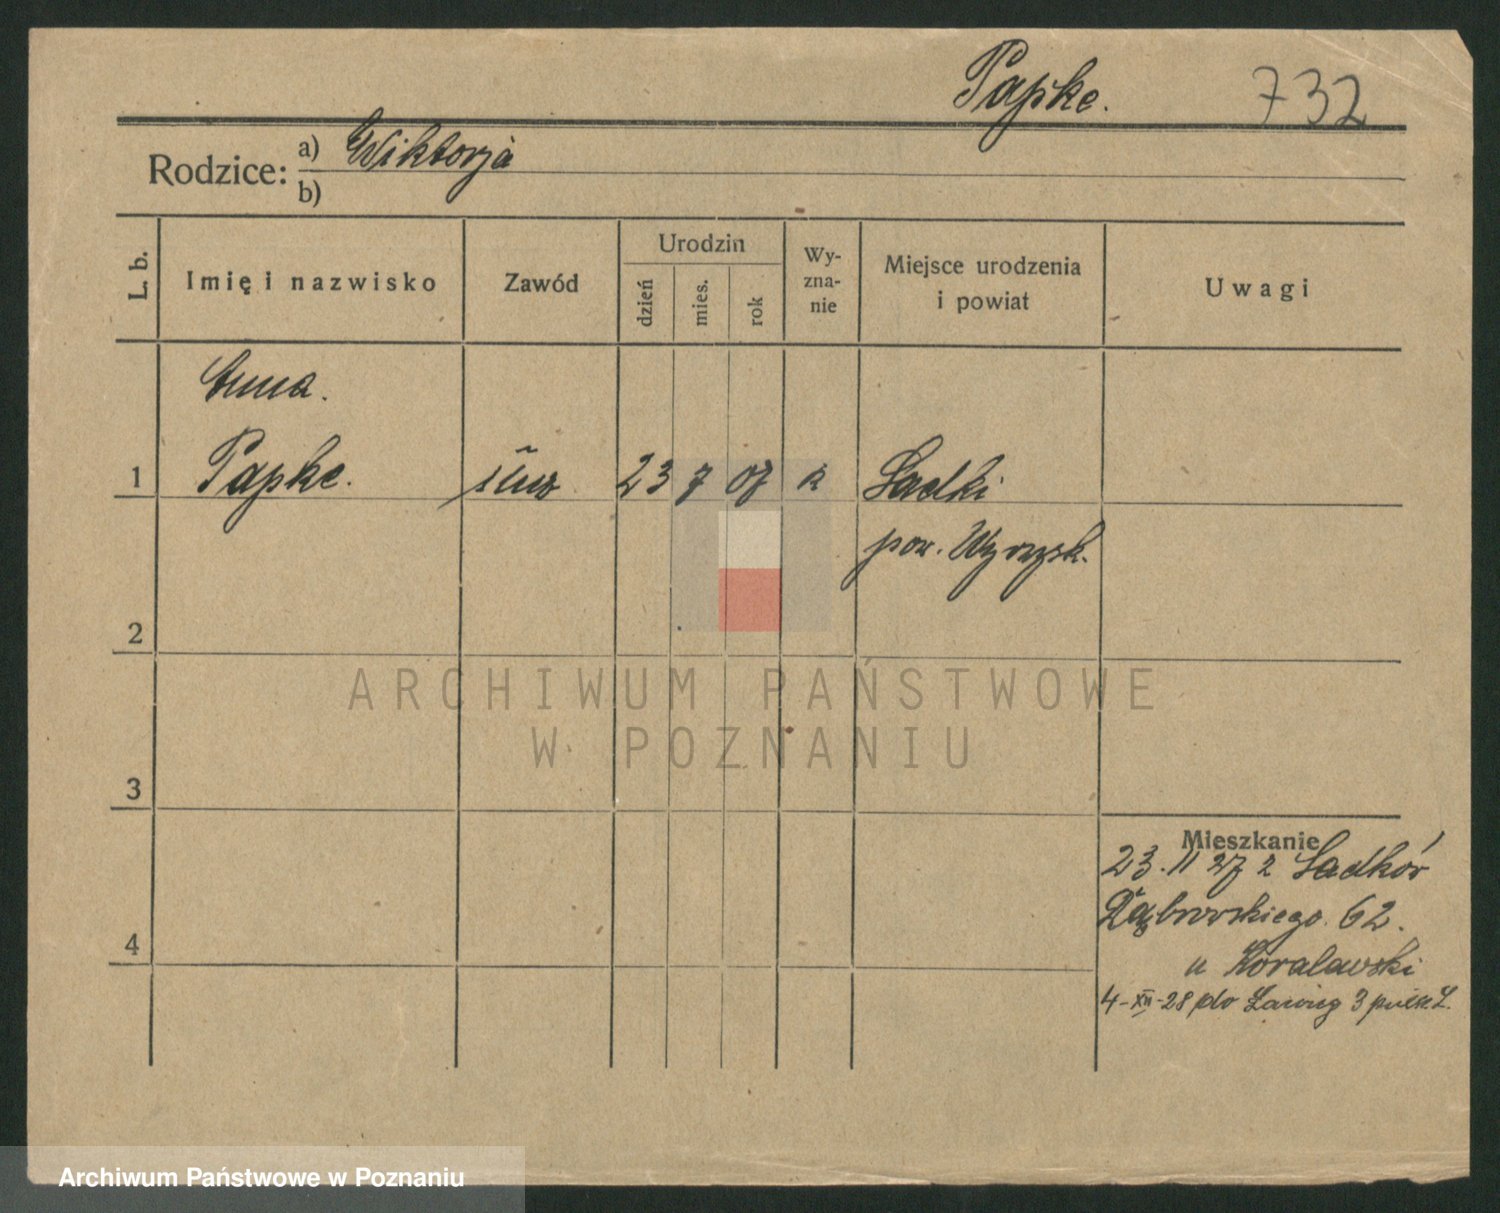 Papke. 732
Rodzice: a) Wiktorja
b)
L. b. Imię i nazwisko Zawód Urodzin dzień mies. rok Wy-zna-nie Miejsce urodzenia i powiat Uwagi
Anna.
1 Papke. 23 7 07 k Sadki
pow. Wyrzysk.
2
ARCHIWUM PAŃSTWOWE
W POZNANIU
3
Mieszkanie
23. 11 27 z Sadków
Dąbrowskiego. 62.
4
u Koralewski
4-XII-28 do 3 pułk L.
Archiwum Państwowe w Poznaniu